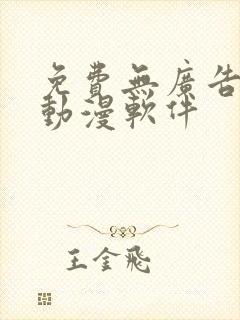 免費無廣告
動漫軟件
王金飛